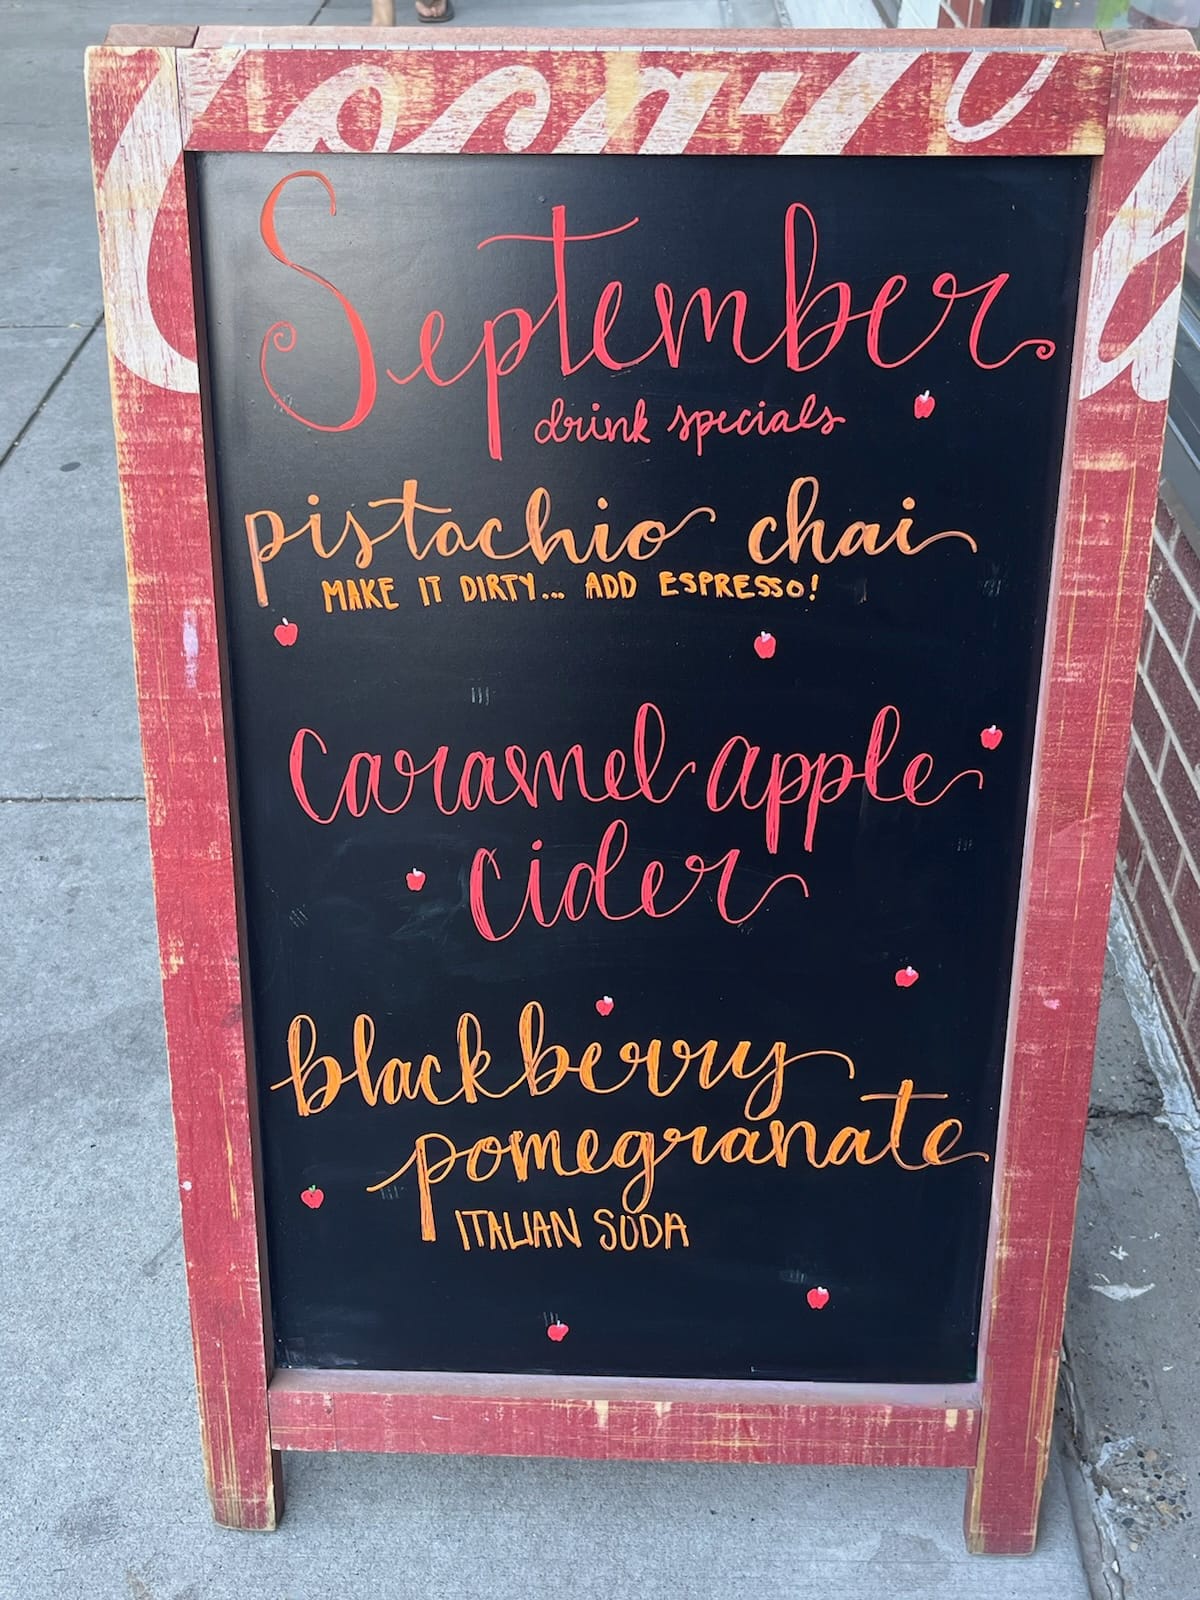 Coca-Co
September
drink specials
pistachio chai
MAKE IT DIRTY... ADD ESPRESSO!
Caramel apple
Cider
blackberry
pomegranate
ITALIAN SODA